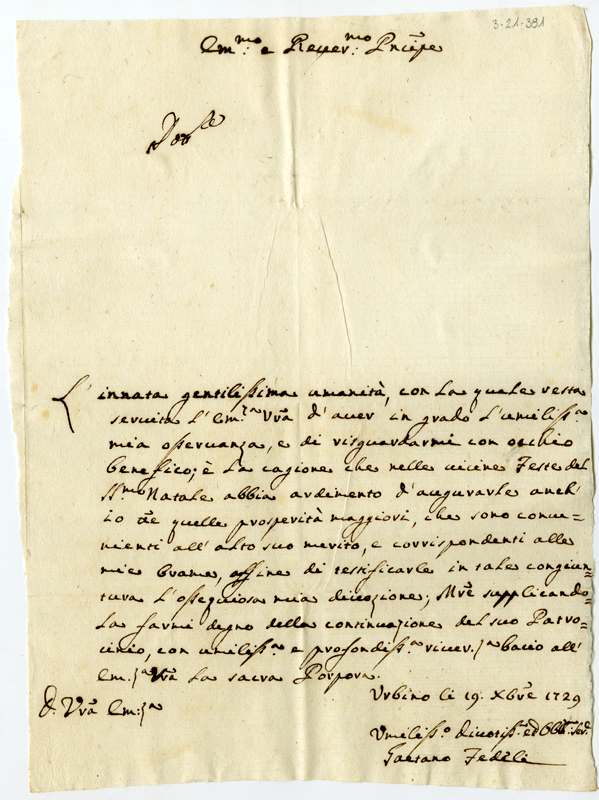 3-21-391
Em.mo e Rever.mo Prīcipe
L'innata gentilissima umanità, con la quale resta
servita l'Em.za Vrā d'aver in grado l'umiliss.a
mia osservanza, e di risguardarmi con occhio
benefico; è la cagione che nelle vicine Feste del
SS.mo Natale abbia ardimento d'augurarle anch'
io tt̄e quelle prosperità maggiori, che sono conve=
nienti all'alto suo merito, e corrispondenti alle
mie brame, affine di testificarle in tale congiun=
tura l'ossequiosa mia divozione; Mr̄e supplicando=
la farmi degno della continuazione del suo Patro=
cinio, con umiliss.a e profondiss.a river.za bacio all'
Em.za Vrā la sacra Porpora.
Urbino li 19. Xbr̄e 1729
D. Vrā Em.za
Umiliss.o divotiss.o ed Obb.mo Ser.
Gaetano Fedeli